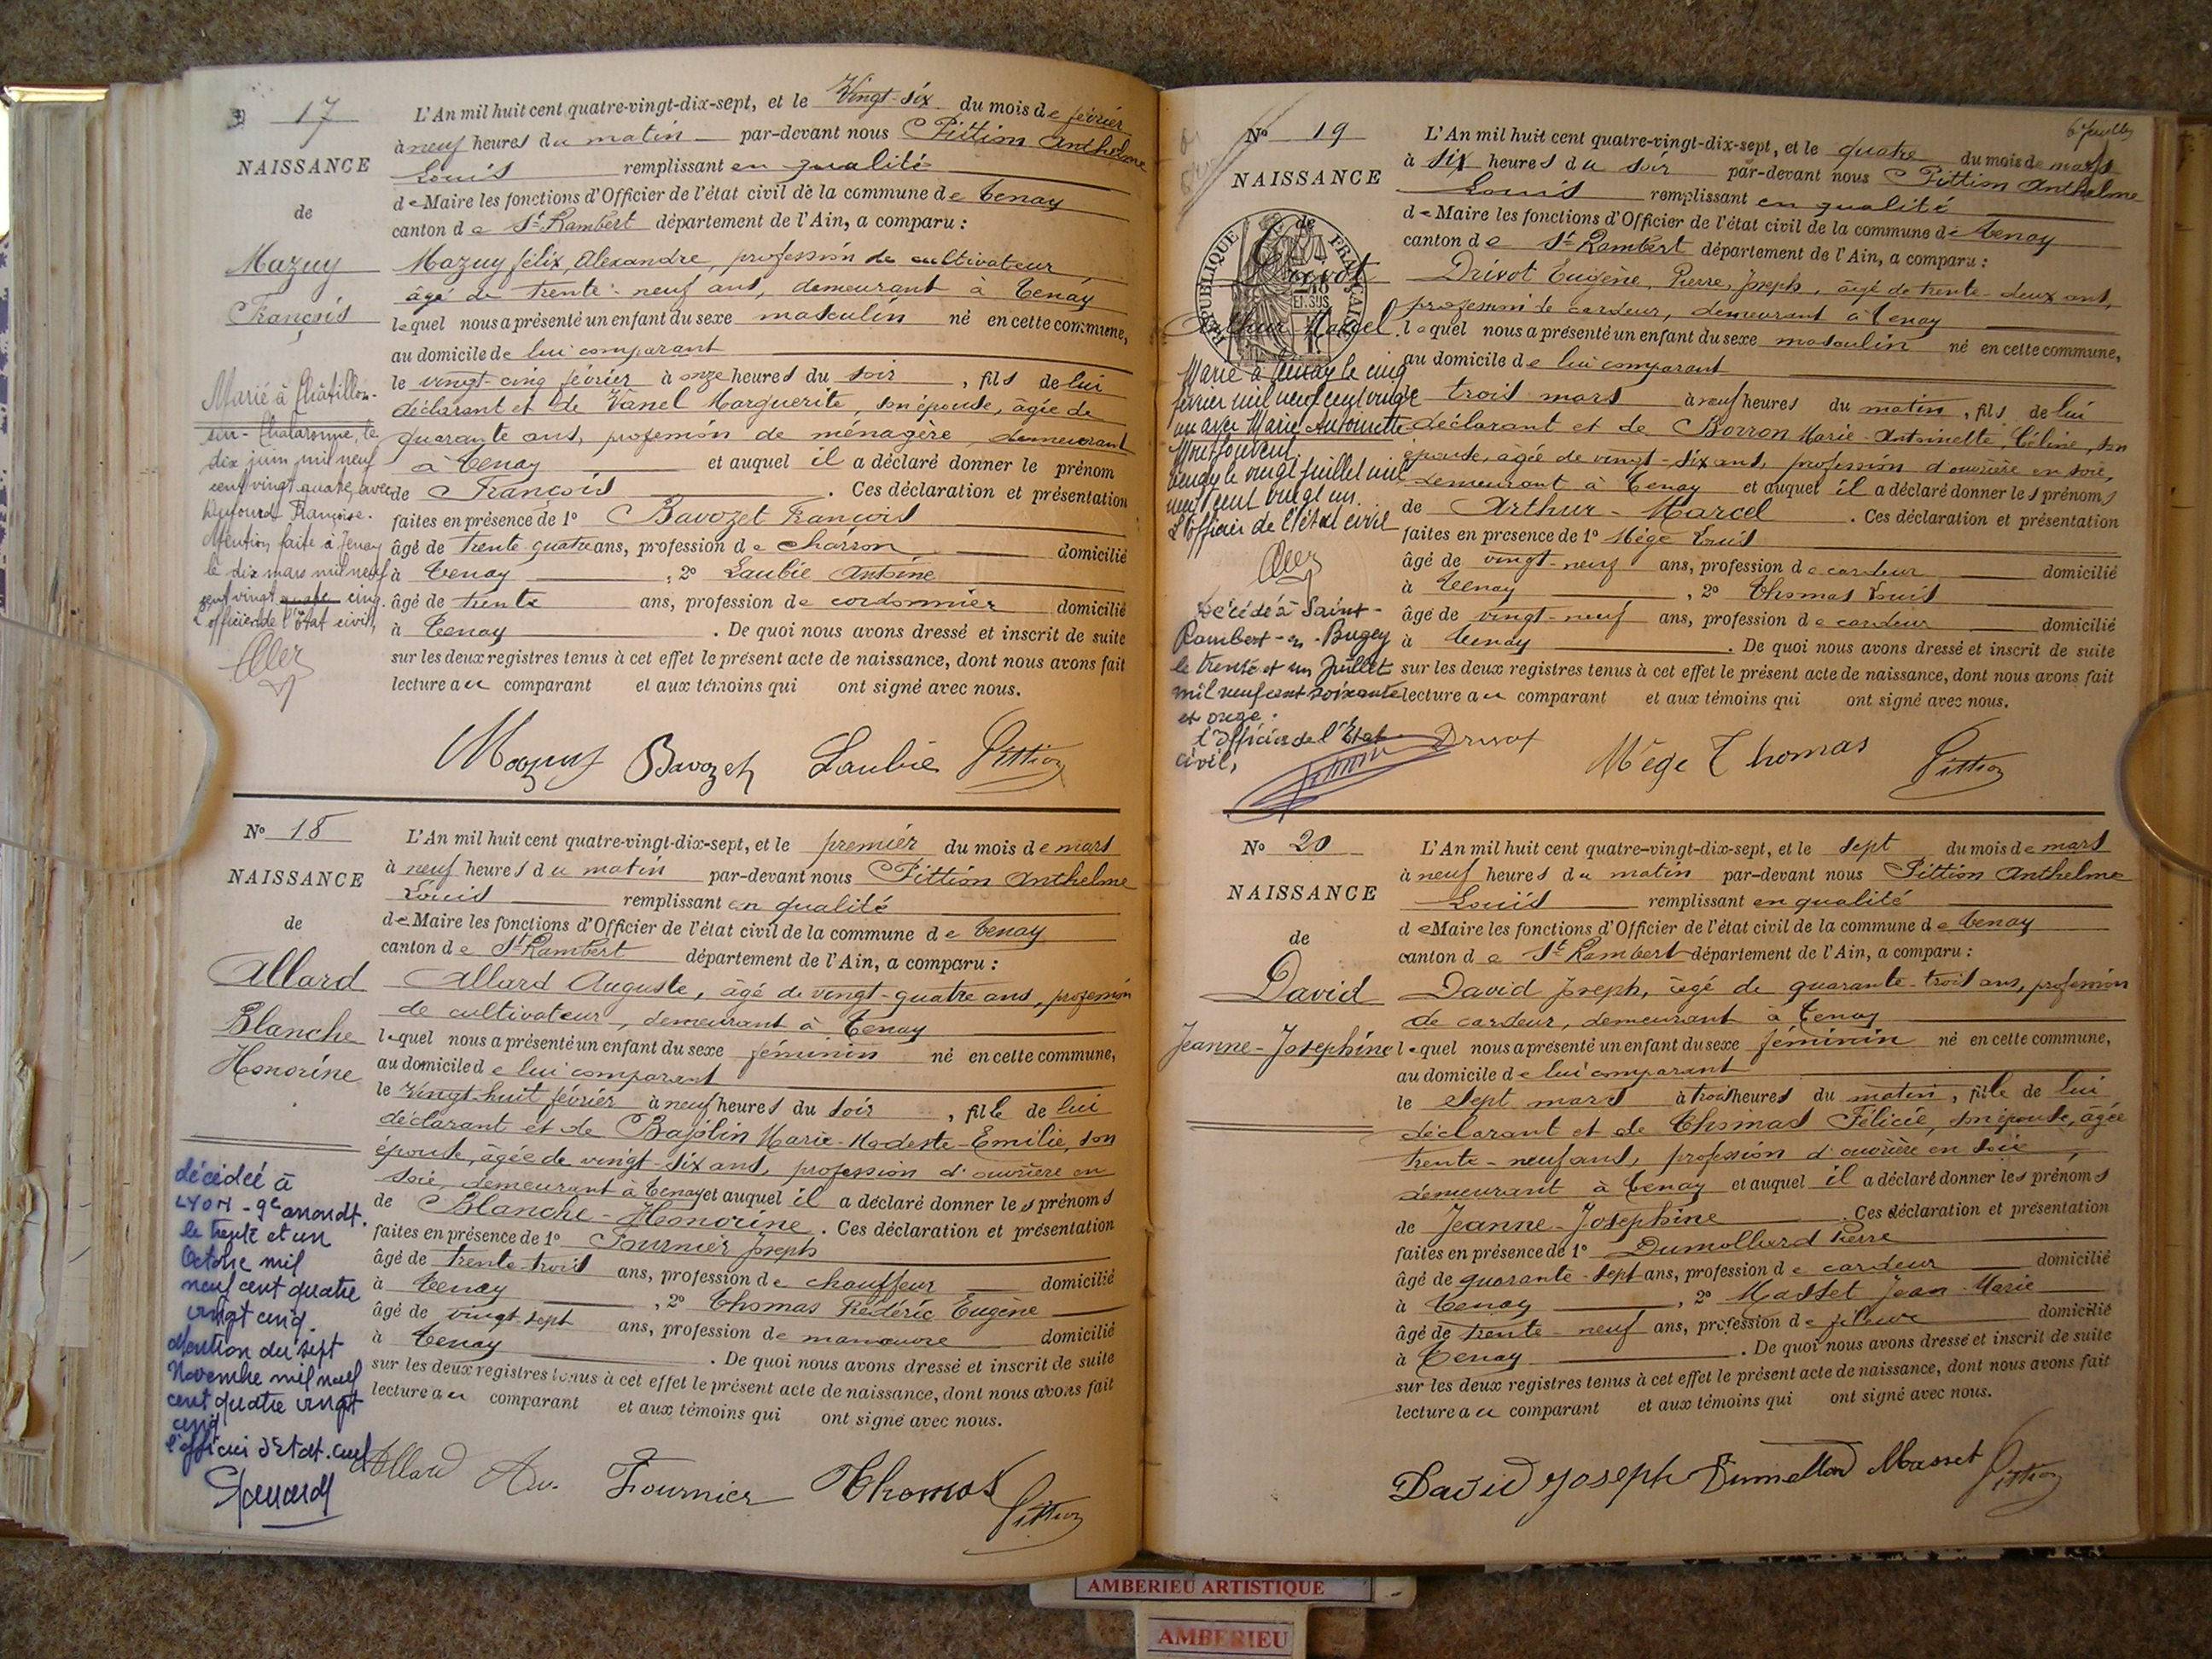 17
NAISSANCE
de
Mazuy
François
Marié à Châtillon-
sur-Chalaronne, le
dix juin mil neuf
cent vingt quatre, avec
Dufourd Françoise.
Mention faite à Tenay
le dix mars mil neuf
cent vingt quatre cinq.
L'officier de l'état civil,
L'An mil huit cent quatre-vingt-dix-sept, et le Vingt-six du mois de février
à neuf heures du matin par-devant nous Pittion Anthelme
Louis remplissant en qualité
de Maire les fonctions d'Officier de l'état civil de la commune de Tenay
canton de St Rambert département de l'Ain, a comparu :
Mazuy félix, Alexandre, profession de cultivateur
âgé de trente-neuf ans, demeurant à Tenay
lequel nous a présenté un enfant du sexe masculin né en cette commune,
au domicile de lui comparant
le vingt-cinq février à onze heures du soir, fils de lui
déclarant et de Vanel Marguerite, son épouse, âgée de
quarante ans, profession de ménagère, demeurant
à Tenay et auquel il a déclaré donner le prénom
de François. Ces déclaration et présentation
faites en présence de 1° Bavozet François
âgé de trente-quatre ans, profession de charron domicilié
à Tenay, 2° Laubie Antoine
âgé de trente ans, profession de cordonnier domicilié
à Tenay. De quoi nous avons dressé et inscrit de suite
sur les deux registres tenus à cet effet le présent acte de naissance, dont nous avons fait
lecture au comparant et aux témoins qui ont signé avec nous.
Mazuy Bavozet Laubie Pittion
N° 18
NAISSANCE
de
Allard
Blanche
Honorine
décédée à
LYON - 9e arrondt.
le trente et un
Octobre mil
neuf cent quatre
vingt cinq.
Mention du sept
Novembre mil neuf
cent quatre vingt
cinq
l'officier d'Etat. civil
L'An mil huit cent quatre-vingt-dix-sept, et le premier du mois de mars
à neuf heures du matin par-devant nous Pittion Anthelme
Louis remplissant en qualité
de Maire les fonctions d'Officier de l'état civil de la commune de Tenay
canton de St Rambert département de l'Ain, a comparu :
Allard Auguste, âgé de vingt-quatre ans, profession
de cultivateur, demeurant à Tenay
lequel nous a présenté un enfant du sexe féminin né en cette commune,
au domicile de lui comparant
le Vingt-huit février à neuf heures du soir, fille de lui
déclarant et de Marie-Modeste-Emilie, son
épouse, âgée de vingt-six ans, profession d'ouvrière en
soie, demeurant à Tenay et auquel il a déclaré donner les prénoms
de Blanche-Honorine. Ces déclaration et présentation
faites en présence de 1° Fournier Joseph
âgé de trente-trois ans, profession de chauffeur domicilié
à Tenay, 2° Thomas Frédéric Eugène
âgé de vingt-sept ans, profession de manœuvre domicilié
à Tenay. De quoi nous avons dressé et inscrit de suite
sur les deux registres tenus à cet effet le présent acte de naissance, dont nous avons fait
lecture au comparant et aux témoins qui ont signé avec nous.
Allard Au. Fournier Thomas Pittion
N° 19
NAISSANCE
de
Drivot
Arthur-Marcel
RÉPUBLIQUE FRANÇAISE
Marié à Tenay le cinq
février mil neuf cent vingt
un avec Marie Antoinette
Montjouvent.
Tenay le vingt juillet mil
neuf cent vingt un.
L'officier de l'état civil
Décédé à Saint-
Rambert-en-Bugey
le trente et un Juillet
mil neuf cent soixante
et onze.
L'Officier de l'Etat
civil,
L'An mil huit cent quatre-vingt-dix-sept, et le quatre du mois de mars
à six heures du soir par-devant nous Pittion Anthelme
Louis remplissant en qualité
de Maire les fonctions d'Officier de l'état civil de la commune de Tenay
canton de St Rambert département de l'Ain, a comparu :
Drivot Eugène, Pierre, Joseph, âgé de trente-deux ans,
profession de cardeur, demeurant à Tenay
lequel nous a présenté un enfant du sexe masculin né en cette commune,
au domicile de lui comparant
le trois mars à neuf heures du matin, fils de lui
déclarant et de Borron Marie-Antoinette Céline, son
épouse, âgée de vingt-six ans, profession d'ouvrière en soie,
demeurant à Tenay et auquel il a déclaré donner les prénoms
de Arthur-Marcel. Ces déclaration et présentation
faites en présence de 1° Mége Louis
âgé de vingt-neuf ans, profession de cardeur domicilié
à Tenay, 2° Thomas Louis
âgé de vingt-neuf ans, profession de cardeur domicilié
à Tenay. De quoi nous avons dressé et inscrit de suite
sur les deux registres tenus à cet effet le présent acte de naissance, dont nous avons fait
lecture au comparant et aux témoins qui ont signé avec nous.
Drivot Mége Thomas Pittion
N° 20
NAISSANCE
de
David
Jeanne-Josephine
L'An mil huit cent quatre-vingt-dix-sept, et le sept du mois de mars
à neuf heures du matin par-devant nous Pittion Anthelme
Louis remplissant en qualité
de Maire les fonctions d'Officier de l'état civil de la commune de Tenay
canton de St Rambert département de l'Ain, a comparu :
David Joseph, âgé de quarante-trois ans, profession
de cardeur, demeurant à Tenay
lequel nous a présenté un enfant du sexe féminin né en cette commune,
au domicile de lui comparant
le sept mars à trois heures du matin, fille de lui
déclarant et de Thomas Félicie, son épouse, âgée
trente-neuf ans, profession d'ouvrière en soie
demeurant à Tenay et auquel il a déclaré donner les prénoms
de Jeanne-Josephine. Ces déclaration et présentation
faites en présence de 1° Dumollard Pierre
âgé de quarante-sept ans, profession de cardeur domicilié
à Tenay, 2° Masset Jean-Marie
âgé de trente-neuf ans, profession de fileur domicilié
à Tenay. De quoi nous avons dressé et inscrit de suite
sur les deux registres tenus à cet effet le présent acte de naissance, dont nous avons fait
lecture au comparant et aux témoins qui ont signé avec nous.
David Joseph Dumollard Masset Pittion
AMBERIEU ARTISTIQUE
AMBERIEU